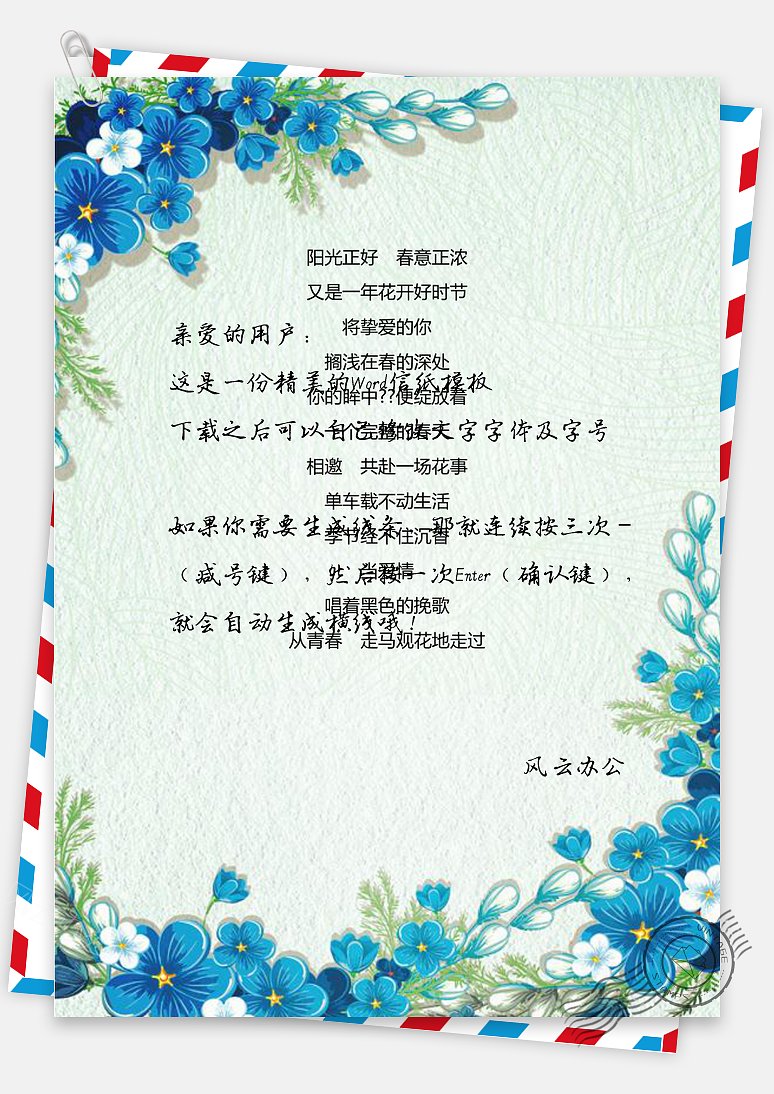 阳光正好　春意正浓
又是一年花开好时节
将挚爱的你
搁浅在春的深处
你的眸中??便绽放着
一个完整的春天
相邀　共赴一场花事
单车载不动生活
季节经不住沉香
当爱情
唱着黑色的挽歌
从青春　走马观花地走过
亲爱的用户：
这是一份精美的Word信纸模板
下载之后可以自己修改文字字体及字号
如果你需要生成线条，那就连续按三次－
（减号键），然后按一次Enter（确认键），
就会自动生成横线哦！
风云办公